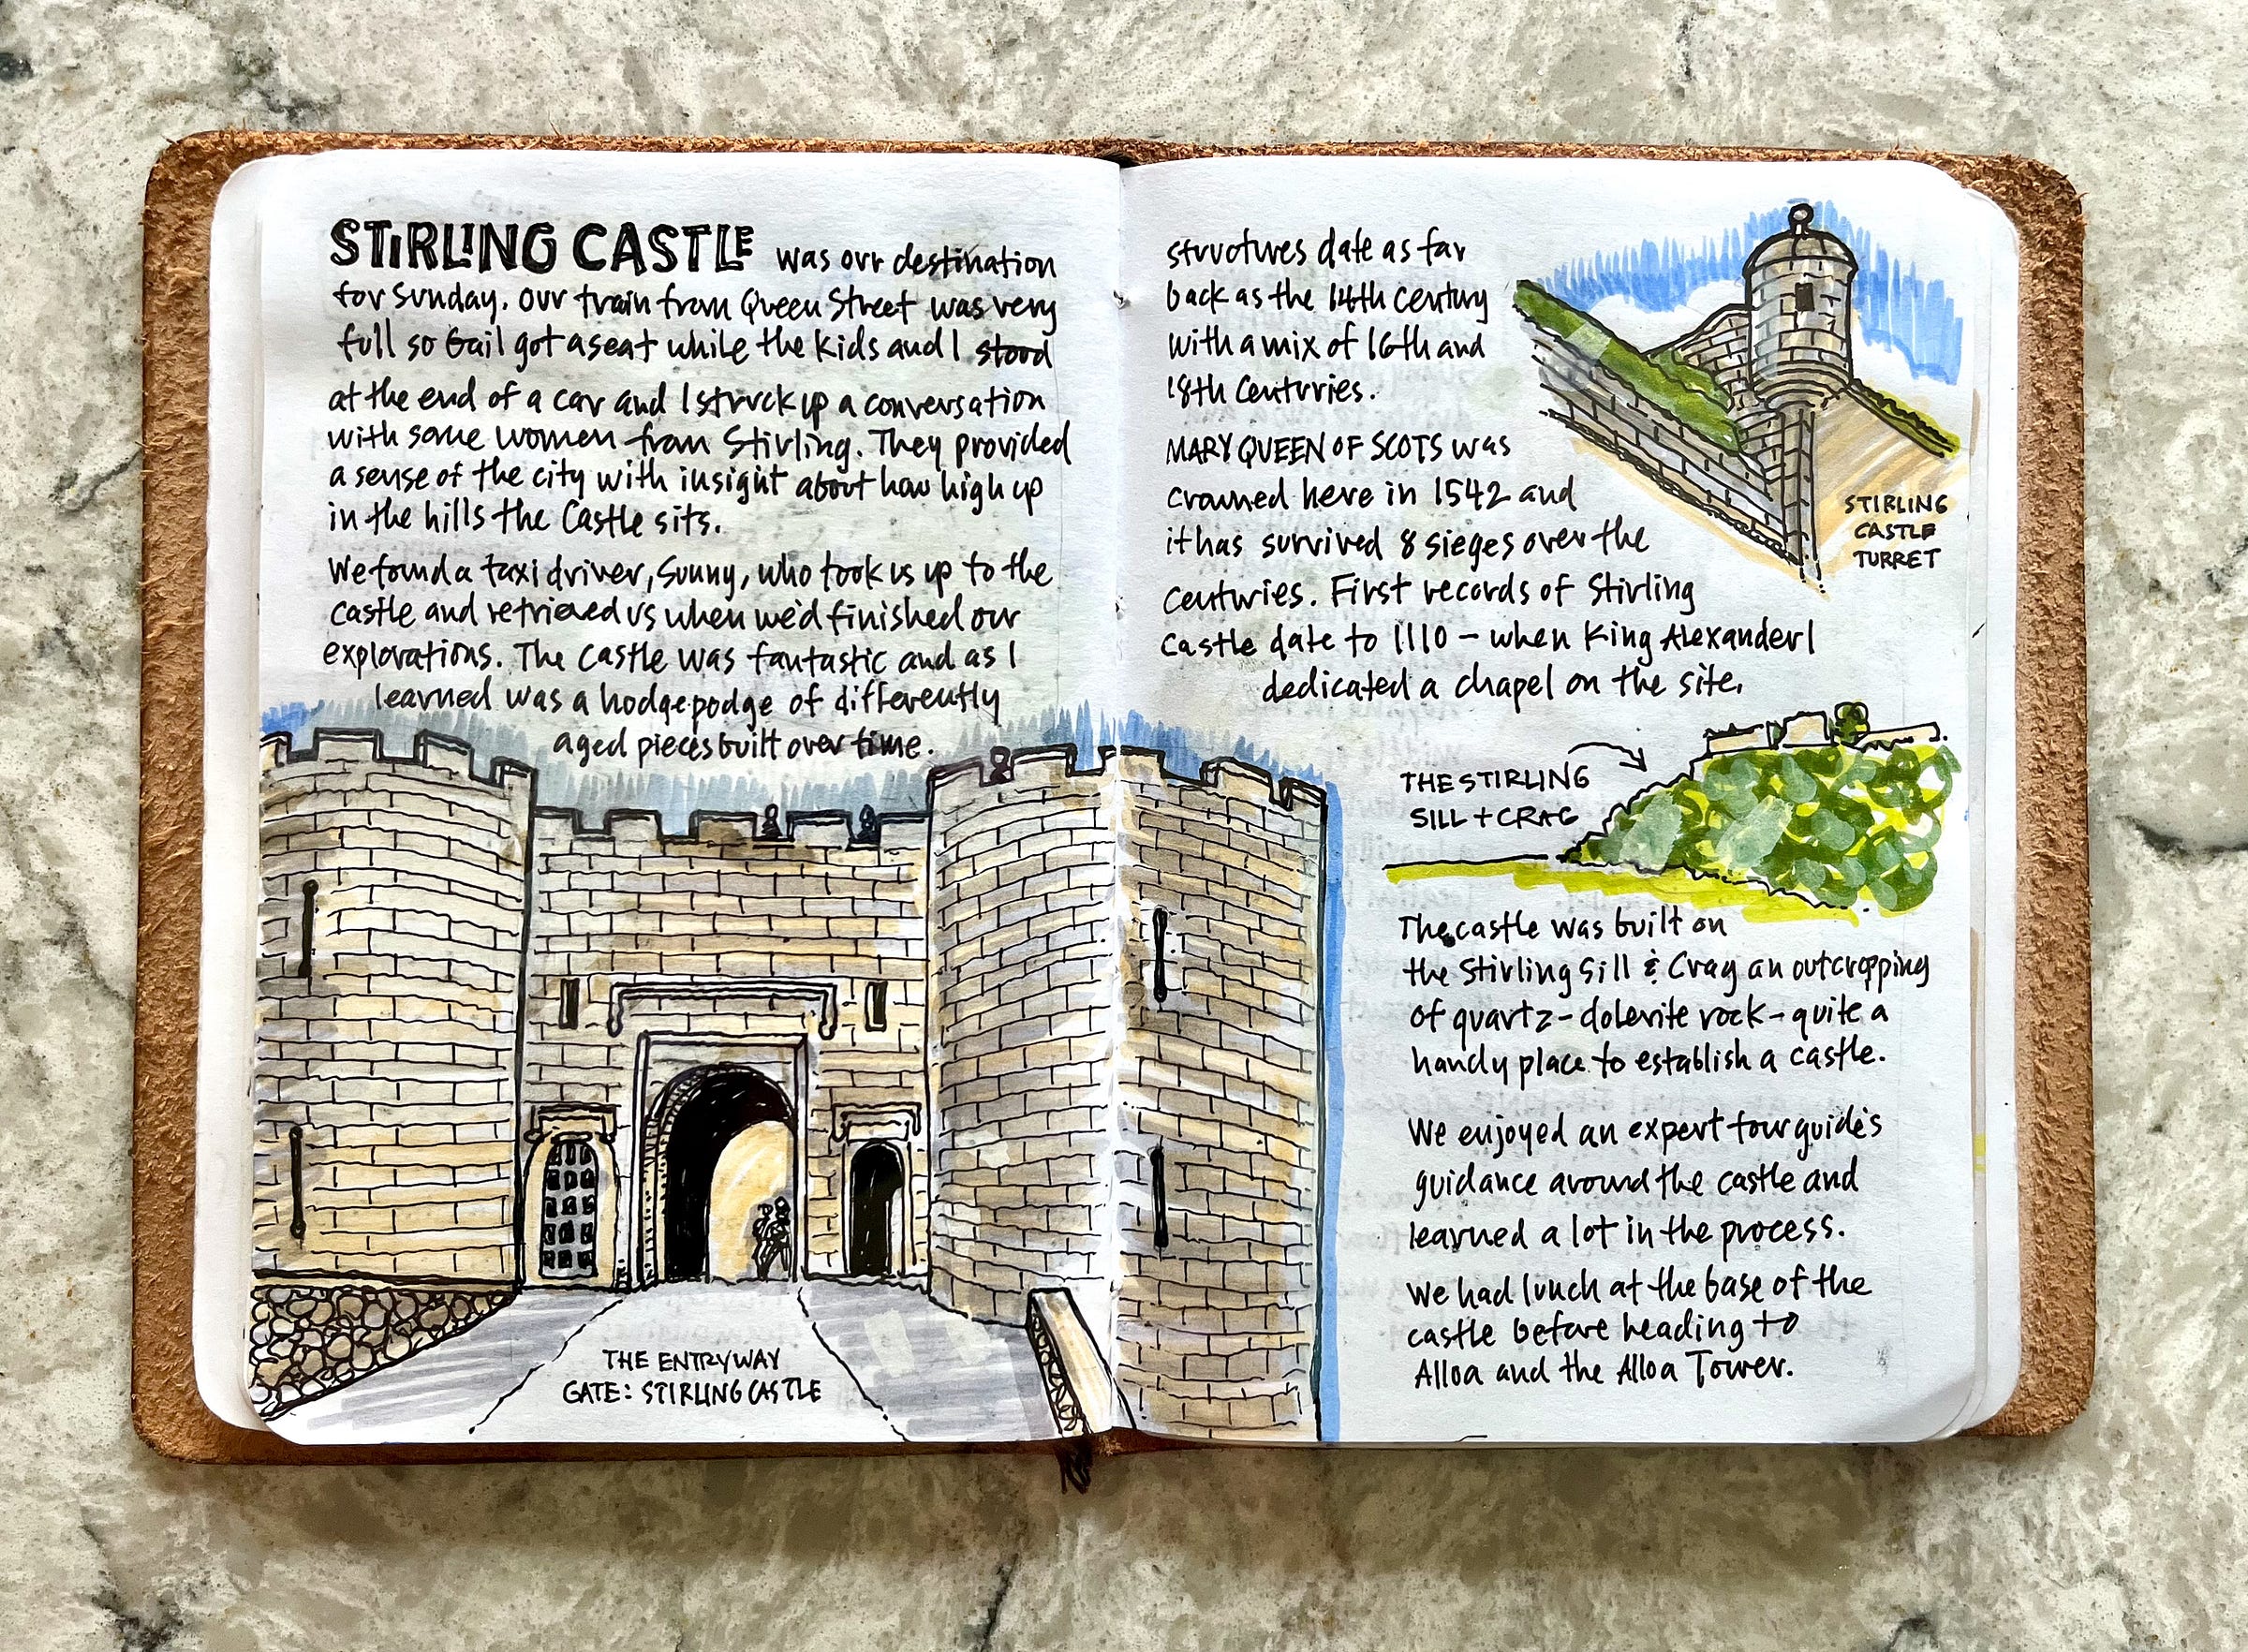 STIRLING CASTLE was our destination
for Sunday. Our train from Queen Street was very
full so Gail got a seat while the kids and I stood
at the end of a car and I struck up a conversation
with some women from Stirling. They provided
a sense of the city with insight about how high up
in the hills the Castle sits.
We found a taxi driver, Sunny, who took us up to the
castle and retrieved us when we'd finished our
explorations. The castle was fantastic and as I
learned was a hodgepodge of differently
aged pieces built over time.
THE ENTRYWAY
GATE: STIRLING CASTLE
structures date as far
back as the 14th Century
with a mix of 16th and
18th Centuries.
MARY QUEEN OF SCOTS was
crowned here in 1542 and
it has survived 8 sieges over the
centuries. First records of Stirling
Castle date to 1110 – when King Alexander I
dedicated a chapel on the site.
STIRLING
CASTLE
TURRET
THE STIRLING
SILL + CRAG
The castle was built on
the Stirling Sill & Crag an outcropping
of quartz-dolerite rock – quite a
handy place to establish a castle.
We enjoyed an expert tour guide's
guidance around the castle and
learned a lot in the process.
We had lunch at the base of the
castle before heading to
Alloa and the Alloa Tower.